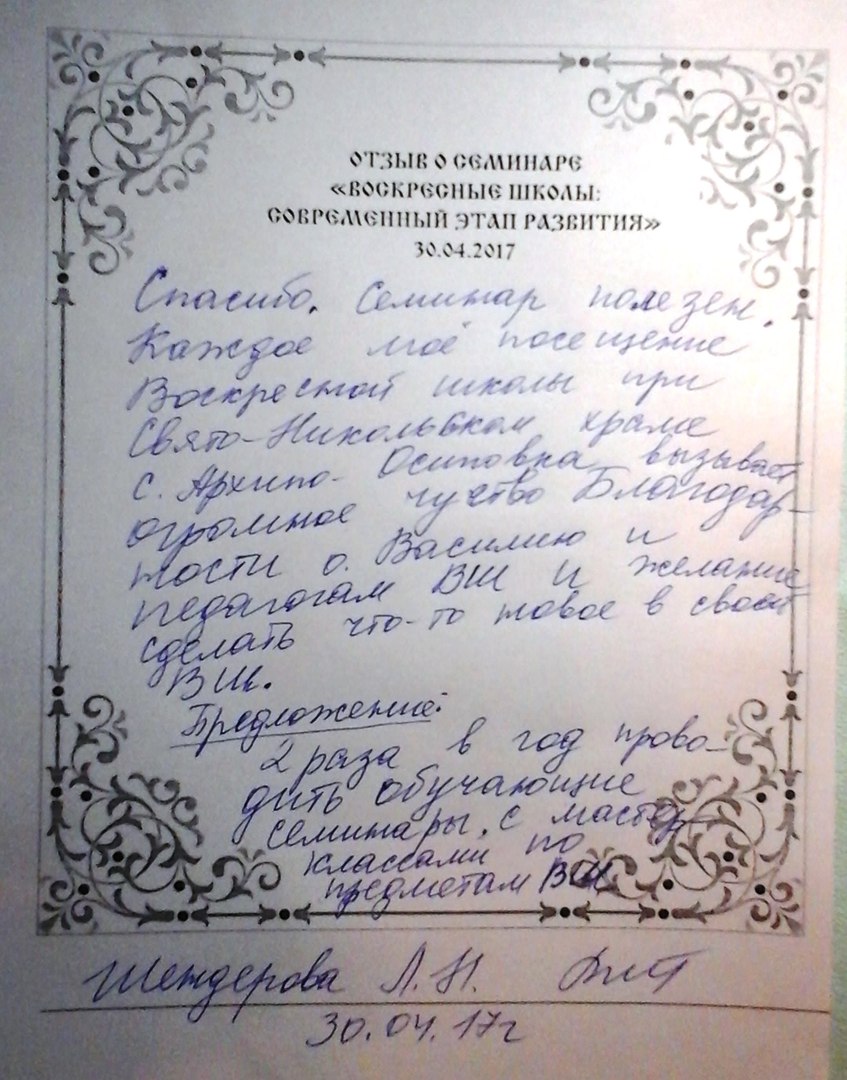 ОТЗЫВ О СЕМИНАРЕ
«ВОСКРЕСНЫЕ ШКОЛЫ:
СОВРЕМЕННЫЙ ЭТАП РАЗВИТИЯ»
30.04.2017
Спасибо. Семинар полезен.
Каждое моё посещение
Воскресной школы при
Свято-Никольском храме
с. Архипо-Осиповка вызывает
огромное чуство Благодар-
ности о. Василию и
педагогам ВШ и желание
сделать что-то новое в своей
ВШ.
Предложение:
2 раза в год прово-
дить обучающие
семинары, с мастер-
классами по
предметам ВШ
Шендерова Л.Н.
30.04.17г